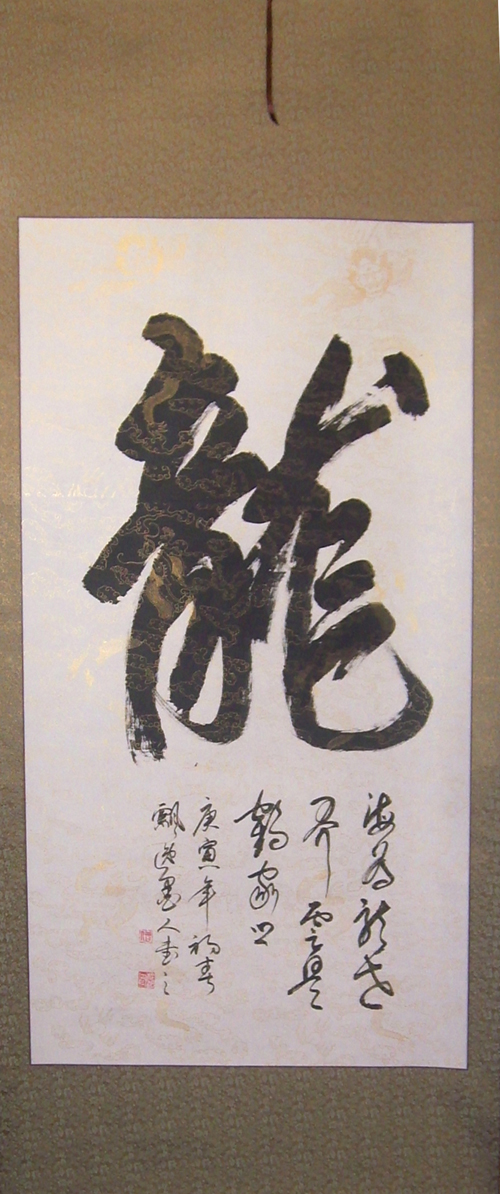 龍
海為龍世
界雲是
鶴家鄉
庚寅年初春
飄逸墨人書之